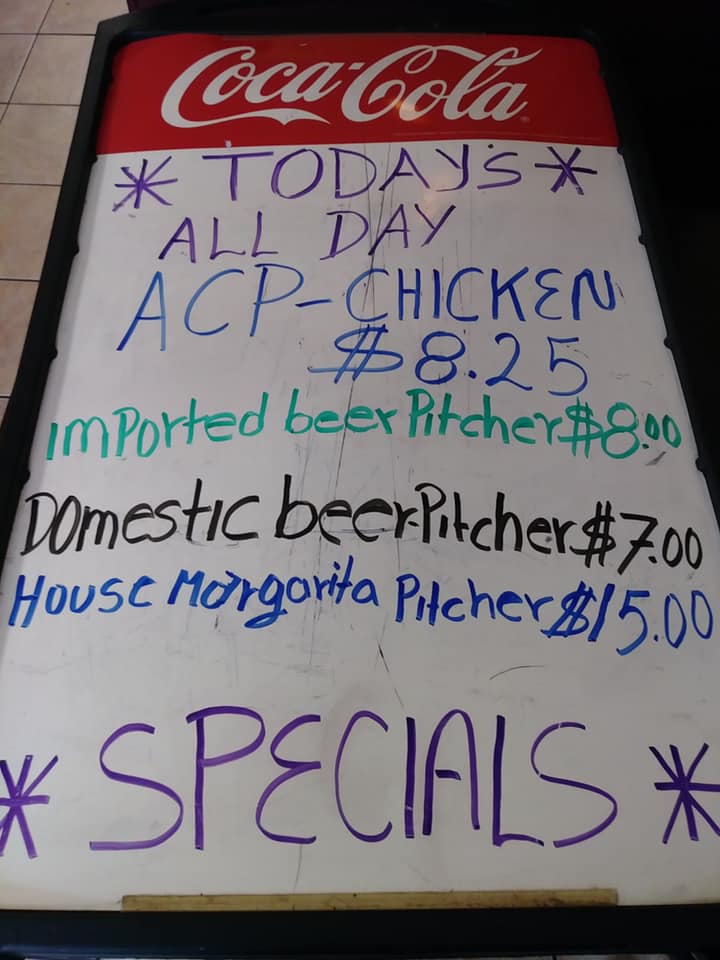 Coca-Cola
* TODAYS *
ALL DAY
ACP-CHICKEN
$8.25
imPorted beer Pitcher $8.00
Domestic beer Pitcher $7.00
House Morgarita Pitcher $15.00
* SPECIALS *